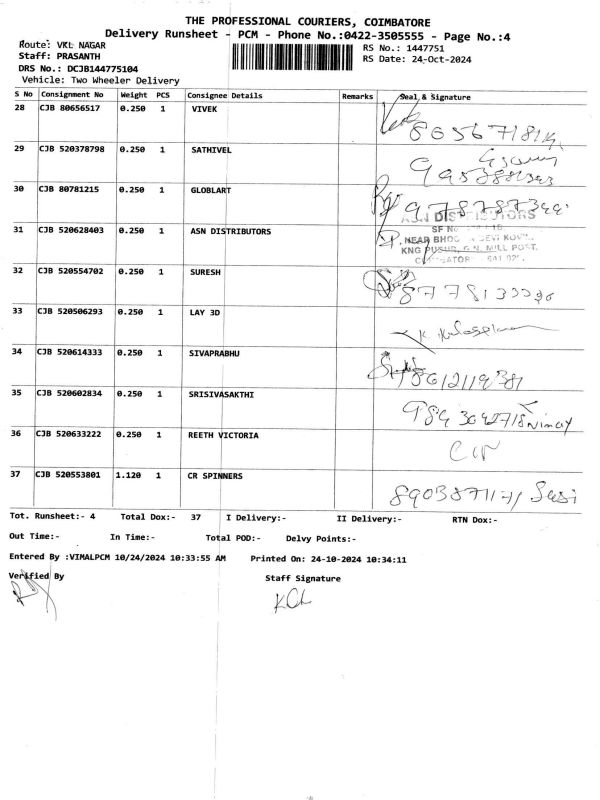 THE PROFESSIONAL COURIERS, COIMBATORE
Delivery Runsheet - PCM - Phone No.:0422-3505555 - Page No.:4
Route: VKL NAGAR
RS No.: 1447751
Staff: PRASANTH
RS Date: 24-Oct-2024
DRS No.: DCJB144775104
Vehicle: Two Wheeler Delivery
S No Consignment No Weight PCS Consignee Details Remarks Seal & Signature
28 CJB 80656517 0.250 1 VIVEK
29 CJB 520378798 0.250 1 SATHIVEL
30 CJB 80781215 0.250 1 GLOBLART
31 CJB 520628403 0.250 1 ASN DISTRIBUTORS
ASN DISTRIBUTORS
32 CJB 520554702 0.250 1 SURESH
33 CJB 520506293 0.250 1 LAY 3D
34 CJB 520614333 0.250 1 SIVAPRABHU
35 CJB 520602834 0.250 1 SRISIVASAKTHI
36 CJB 520633222 0.250 1 REETH VICTORIA
37 CJB 520553801 1.120 1 CR SPINNERS
Tot. Runsheet:- 4 Total Dox:- 37 I Delivery:- II Delivery:- RTN Dox:-
Out Time:- In Time:- Total POD:- Delvy Points:-
Entered By :VIMALPCM 10/24/2024 10:33:55 AM Printed On: 24-10-2024 10:34:11
Verified By Staff Signature